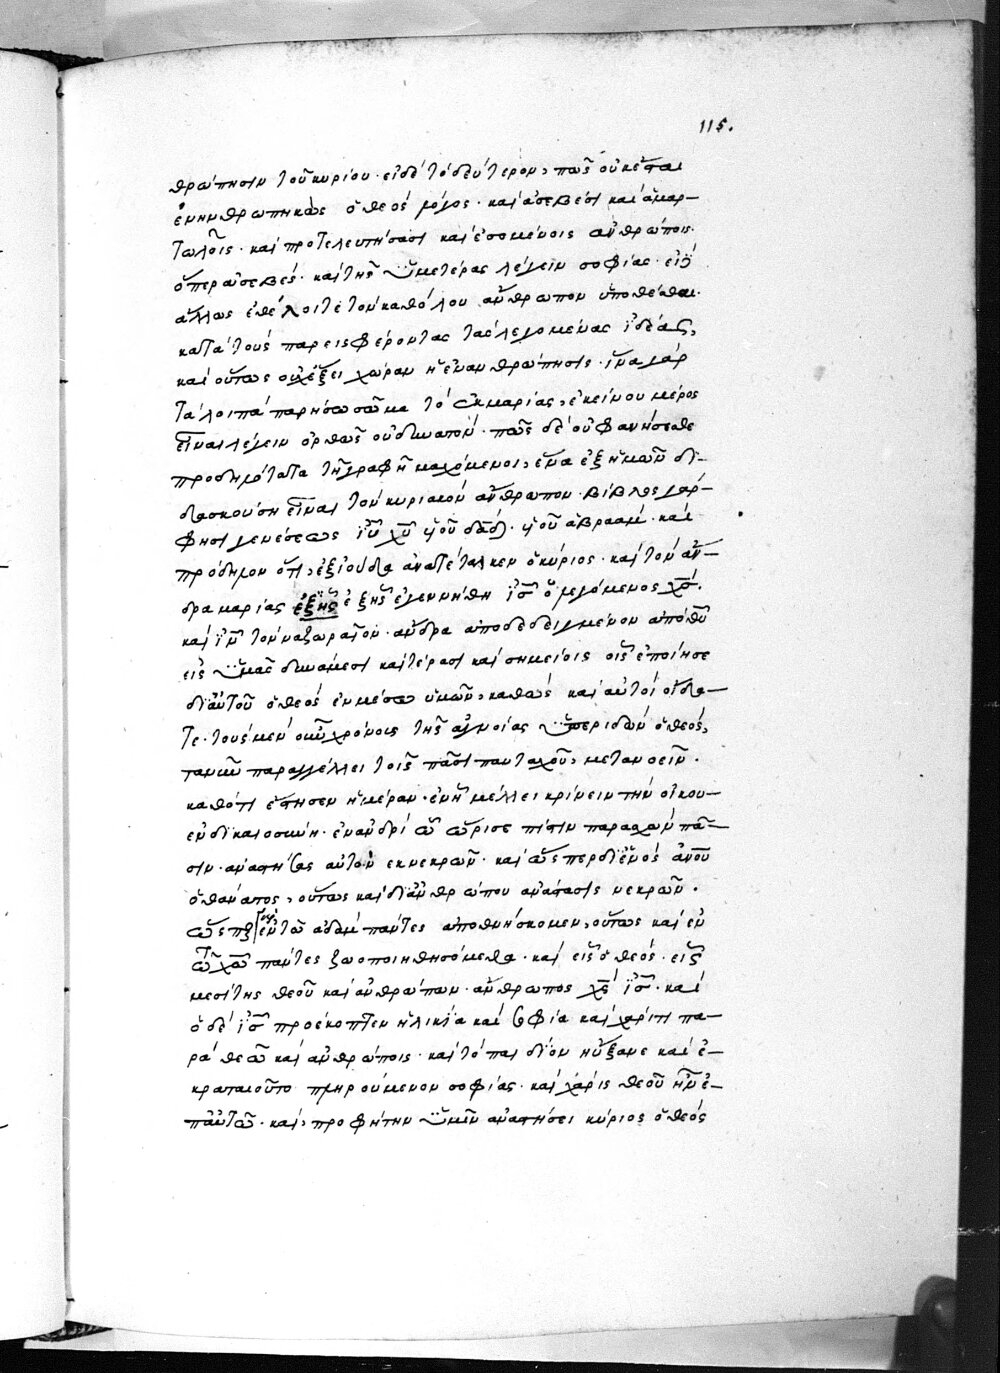 115.
θρώπησιν τοῦ κυρίου· εἰ δὲ τὸ δεύτερον, πῶς οὐκ ἔσται
ἐνηνθρωπηκὼς ὁ θεὸς λόγος· καὶ ἀσεβέσι καὶ ἁμαρ-
τωλοῖς· καὶ προτελευτήσασι καὶ ἐσομένοις ἀνθρώποις·
ὅπερ ἀσεβές· καὶ τῆς ὑμετέρας λέγειν σοφίας·
ἄλλως ἐθέλοιτε τὸν καθόλου ἄνθρωπον ὑποθέσθαι·
κατὰ τοὺς παρεισφέροντας τὰς λεγομένας ἰδέας,
καὶ οὕτως οὐχ ἕξει χώραν ἡ ἐνανθρώπησις· ἵνα γὰρ
τὰ λοιπὰ παρήσω σῶμα τὸ ἐκ μαρίας, ἐκείνου μέρος
εἶναι λέγειν ὀρθῶς οὐ δυνατόν· πῶς δὲ οὐ φανήσεσθε
προδηλότατα τῇ γραφῇ μαχόμενοι, ἕνα ἐξ ἡμῶν δι-
δασκούσῃ εἶναι τὸν κυριακὸν ἄνθρωπον· βίβλος γάρ-
φησι γενέσεως ἰῦ χῦ υἱοῦ δαδ· υἱοῦ ἀβραάμ· καὶ
πρόδηλον ὅτι, ἐξ ἰούδα ἀνατέταλκεν ὁ κύριος· καὶ τὸν ἄν-
δρα μαρίας ἐξ ἧς ἐξ ἧς ἐγεννήθη ἰς ὁ λεγόμενος χς·
καὶ ἰν τὸν ναζωραῖον· ἄνδρα ἀποδεδειγμένον ἀπὸ θῦ
εἰς ὑμᾶς δυνάμεσι καὶ τέρασι καὶ σημείοις οἷς ἐποίησε
δι αὐτοῦ ὁ θεὸς ἐν μέσω ὑμῶν, καθὼς καὶ αὐτοὶ οἴδα-
τε· τοὺς μὲν οὖν χρόνους τῆς ἀγνοίας ὑπεριδὼν ὁ θεός,
τανῦν παραγγέλλει τοῖς πᾶσι πανταχοῦ, μετανοεῖν·
καθότι ἔστησεν ἡμέραν· ἐν ἧ μέλλει κρίνειν τὴν οἰκου-
ἐν δικαιοσύνη· ἐν ἀνδρὶ ὧ ὥρισε πίστιν παρασχὼν πᾶ-
σιν· ἀναστήσας αὐτὸν ἐκ νεκρῶν· καὶ ὥσπερ δι ἑνὸς ἀνου
ὁ θάνατος, οὕτως καὶ δι ἀνθρώπου ἀνάστασις νεκρῶν·
ὥσπερ ἐν τῶ ἀδὰμ πάντες ἀποθνήσκομεν, οὕτως καὶ ἐν
τῶ χῶ πάντες ζωοποιηθησόμεθα· καὶ εἷς ὁ θεός· εἷς
μεσίτης θεοῦ καὶ ἀνθρώπων· ἄνθρωπος χς ἰς· καὶ
ὁ δὲ ἰς προέκοπτεν ἡλικία καὶ σοφία καὶ χάριτι πα-
ρὰ θεῶ καὶ ἀνθρώποις· καὶ τὸ παιδίον ηὔξανε καὶ ἐ-
κραταιοῦτο πληρούμενον σοφίας· καὶ χάρις θεοῦ ἦν ἐ-
π αὐτῶ· καὶ, προφήτην ὑμῖν ἀναστήσει κύριος ὁ θεὸς